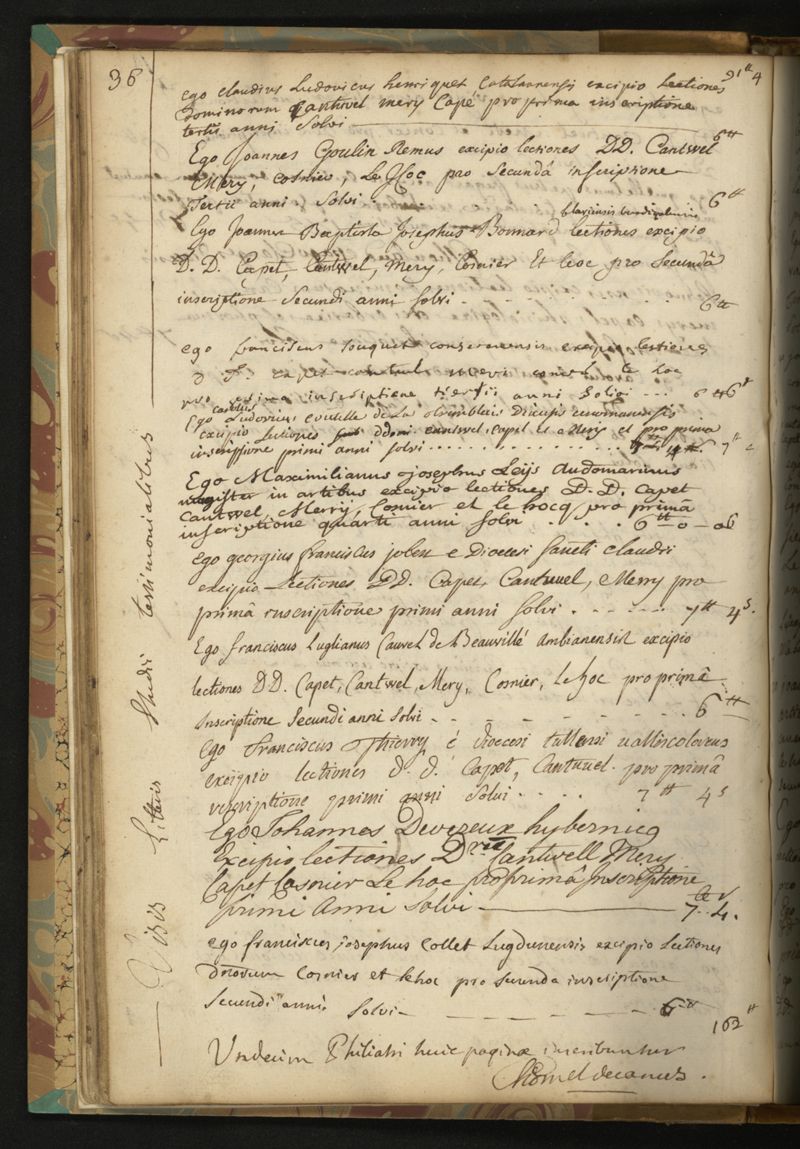 36
91 tt 4
Ego claudius Ludovicus henriquet Catalaunensis excipio Lectiones
dominorum Cantwel mery Capé pro prima inscriptione
tertii anni Solvi
6 tt
Ego Joannes Poulin Remus excipio lectiones DD. Cantwel
Mery, Cosnier, Le Hoc pro Secundâ inscriptione
Tertii anni Solvi . . . 6 tt
Ego Joannes Baptista Josephus Bonnard lectiones excipio
D. D. Capet, Cantwel, Mery, Cosnier Et leoc pro Secundâ
inscriptione Secundi anni solvi - - - - 6 tt
ego franciscus fouquet excipio lectiones
D D. capet cantwel le hoc
pro prima inscriptione tertii anni Solvi ... 6 tt 6 s
Ego carolus Ludovicus de la
excipio Lectiones ddom. cantwel. capet et Mery et pro prima
inscriptione primi anni solvi . . . . . . . . 7 tt 4
Ego Maximilianus Josephus Leijs Audomarinus
magister in artibus excipio lectiones D. D. Capet
Cantwel, Merry, Cosnier et le hocq pro primâ
inscriptione quarti anni solvi . . . . 6 tt 0 - 06
Ego georgius franciscus jobert e Diocesi Sancti claudii
excipio Lectiones DD. Capet, Cantwel, Merry pro
primâ inscriptione primi anni solvi . - - - - . . 7 tt 4 s.
Ego franciscus Luglianus Cauvel de Beauvillé Ambianensis excipio
lectiones DD. Capet, Cantwel, Mery, Cosnier, le hoc pro primâ
Inscriptione Secundi anni Solvi - - - - - - - 6 tt
Ego Franciscus Thierry è dioecesi tullensi vallicoloreus
excipio lectiones d. d. Capet, Cantwel. pro primâ
inscriptione primi anni Solvi - . . . 7 tt 4 s
Ego Johannes Devezeux hybernicq
Excipio lectiones D. Cantwell Mery
Capet Cosnier Le hoc pro primâ Inscriptione
primi Anni Solvi 7 tt 4.
ego franciscus josephus Collet Lugdunensis excipio Lectiones
Cosnier et lehoc pro secunda inscriptione
Secundi anni. Solvi - - - - - 6 tt
162 tt
Undecim Philiatri huic paginae inscribuntur
Chomel decanus.
Visis Litteris Studii testimonialibus